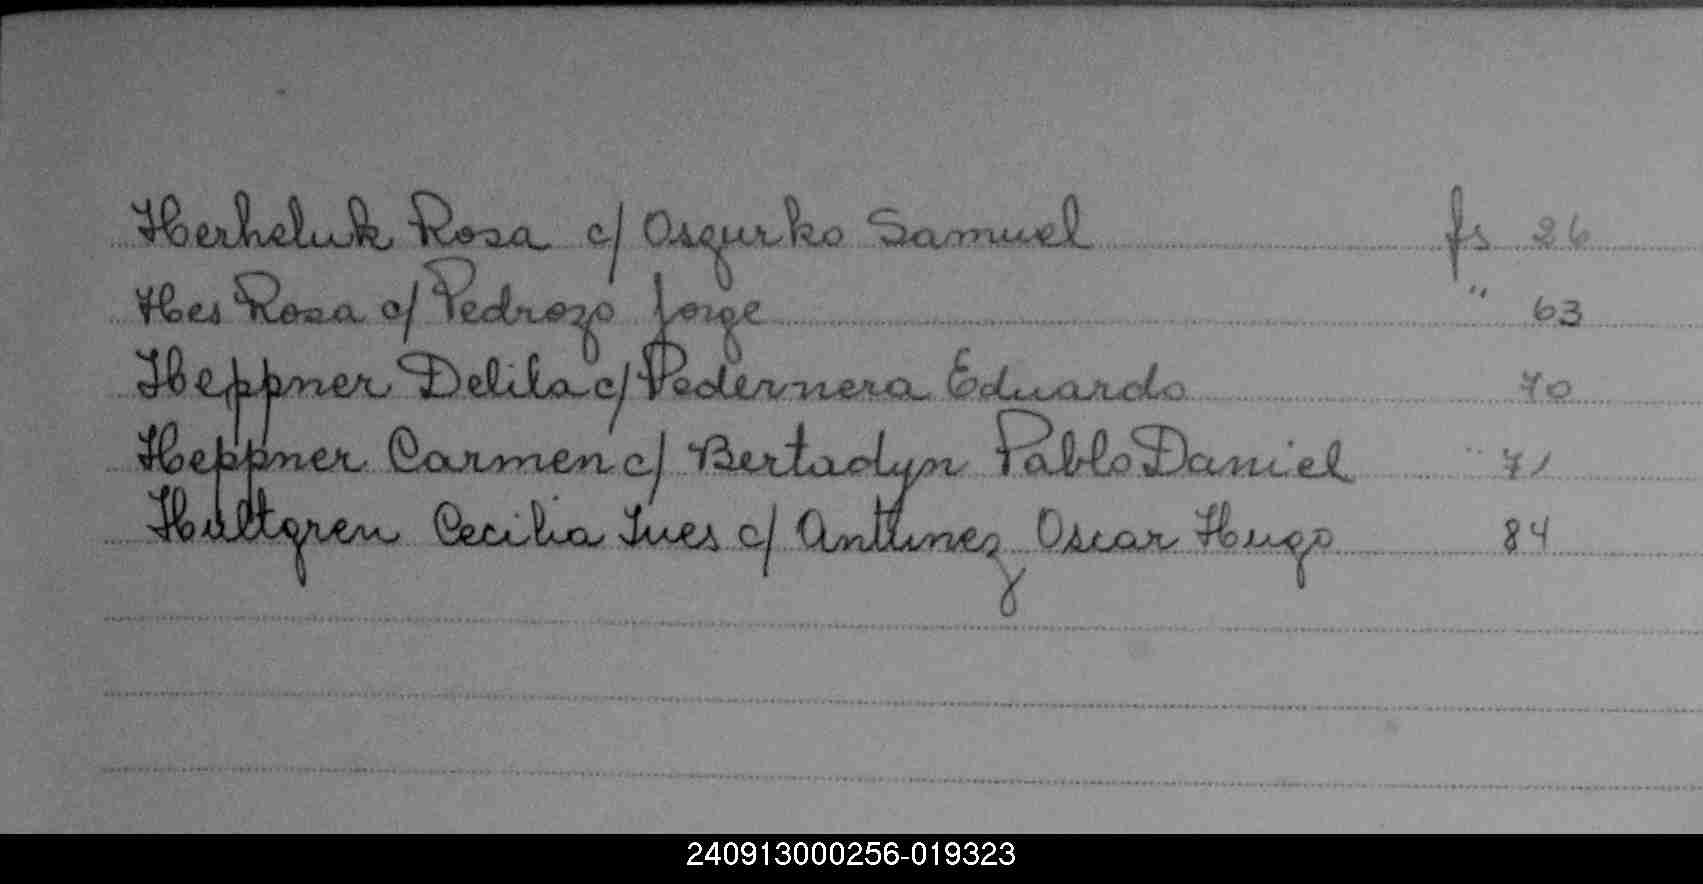 Herheluk Rosa c/ Osgurko Samuel fs 26
Hes Rosa c/ Pedrozo Jorge " 63
Heppner Delila c/ Pedernera Eduardo 70
Heppner Carmen c/ Bertadyn Pablo Daniel " 71
Hultgren Cecilia Ines c/ Anttinez Oscar Hugo 84
240913000256-019323